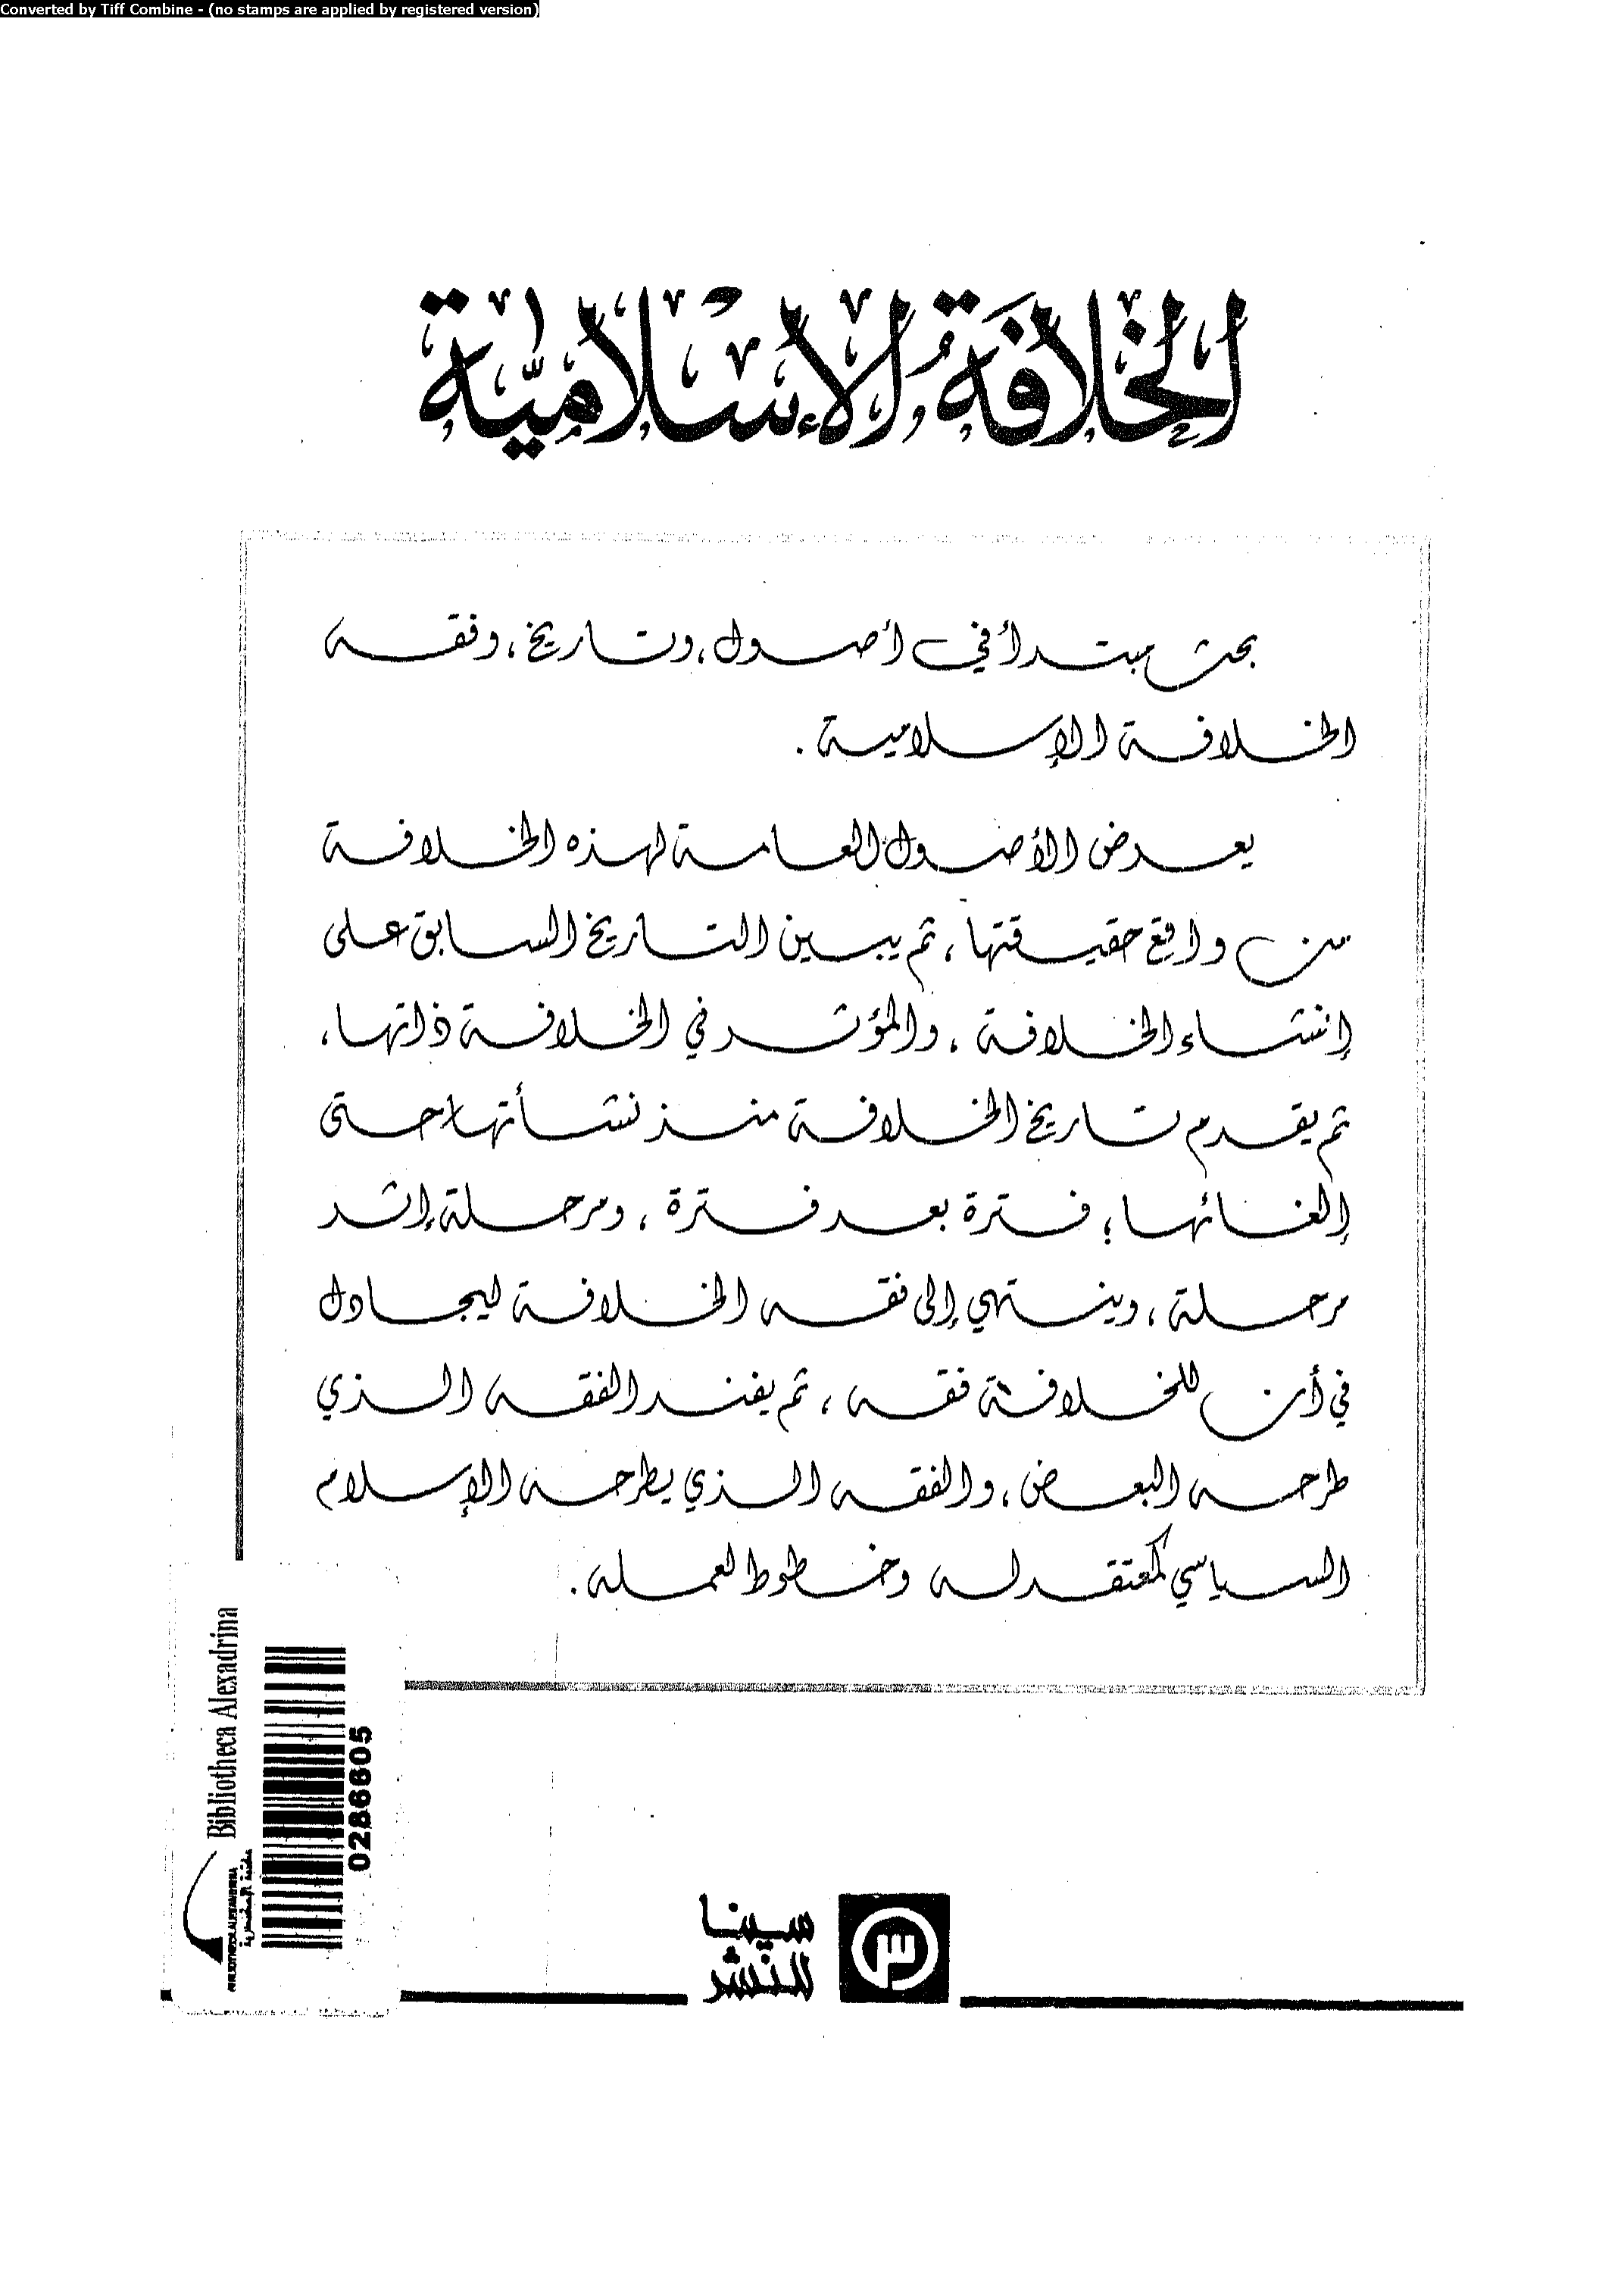 Converted by Tiff Combine - (no stamps are applied by registered version)
الخلافَةُ الإسْلاميّة
بحث مبتدأ في أصول، وتاريخ، وفقه
الخلافة الإسلامية .
يعرض الأصول العامة لهذه الخلافة
من واقع حقيقتها، ثم يبين التاريخ السابق على
إنشاء الخلافة، والمؤثر في الخلافة ذاتها،
ثم يقدم تاريخ الخلافة منذ نشأتها حتى
إلغائها؛ فترة بعد فترة، ومرحلة إثر
مرحلة، وينتهي إلى فقه الخلافة ليجادل
في أن للخلافة فقه، ثم يفند الفقه الذي
طرحه البعض، والفقه الذي يطرحه الإسلام
السياسي كمعتقد له وخطوط لعمله.
Bibliotheca Alexadrina
مكتبة الإسكندرية
0286605
سينا
للنشر